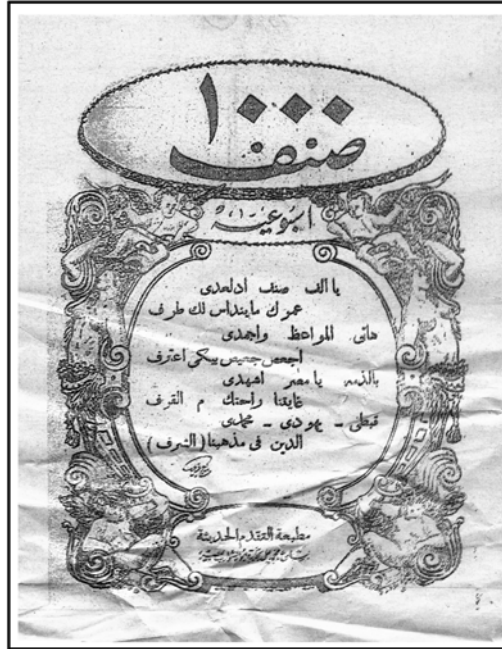 ١٠٠٠
صنف
اسبوعية
يا الف صنف ادلعدى
عمرك ماينداس لك طرف
هاتى المواعظ واجمدى
اجعص جعيص بيكى اعترف
بالذمه يا مصر اشهدى
غايتنا راحتك م القرف
قبطى - يهودى - محمدى
الدين فى مذهبنا (الشرف)
مطبعة التقدم الحديثة